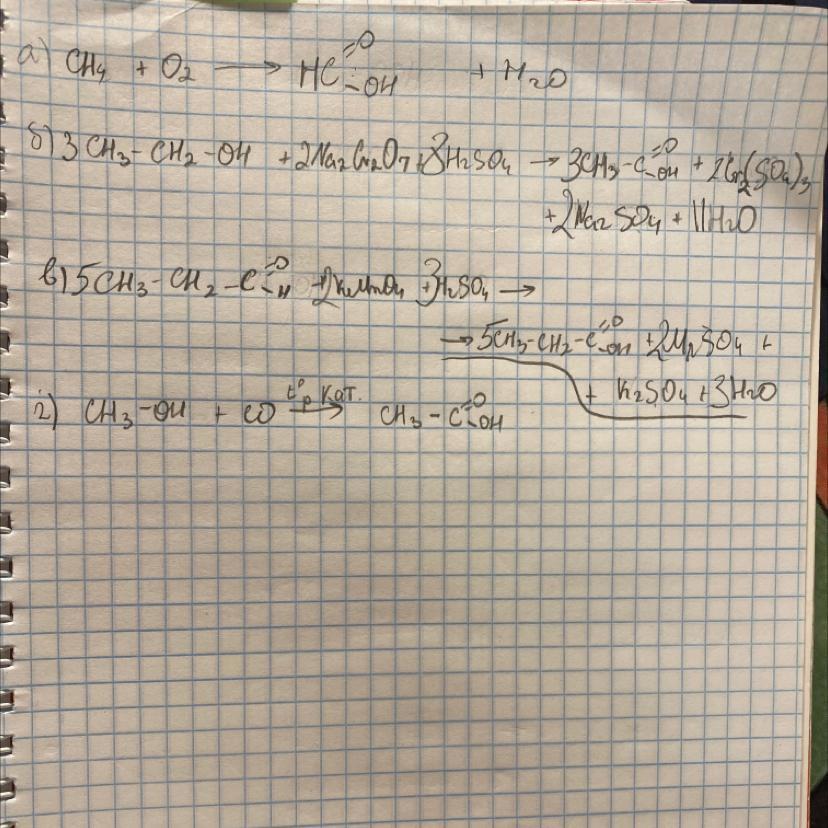 а) CH4 + O2 → HC=O-OH + H2O
б) 3CH3-CH2-OH + 2Na2Cr2O7 + 8H2SO4 → 3CH3-C=O-OH + 2Cr2(SO4)3
+ 2Na2SO4 + 11H2O
в) 5CH3-CH2-C=O-H + 2KMnO4 + 3H2SO4 →
→ 5CH3-CH2-C=O-OH + 2MnSO4 +
+ K2SO4 + 3H2O
г) CH3-OH + CO t° p кат. → CH3-C=O-OH